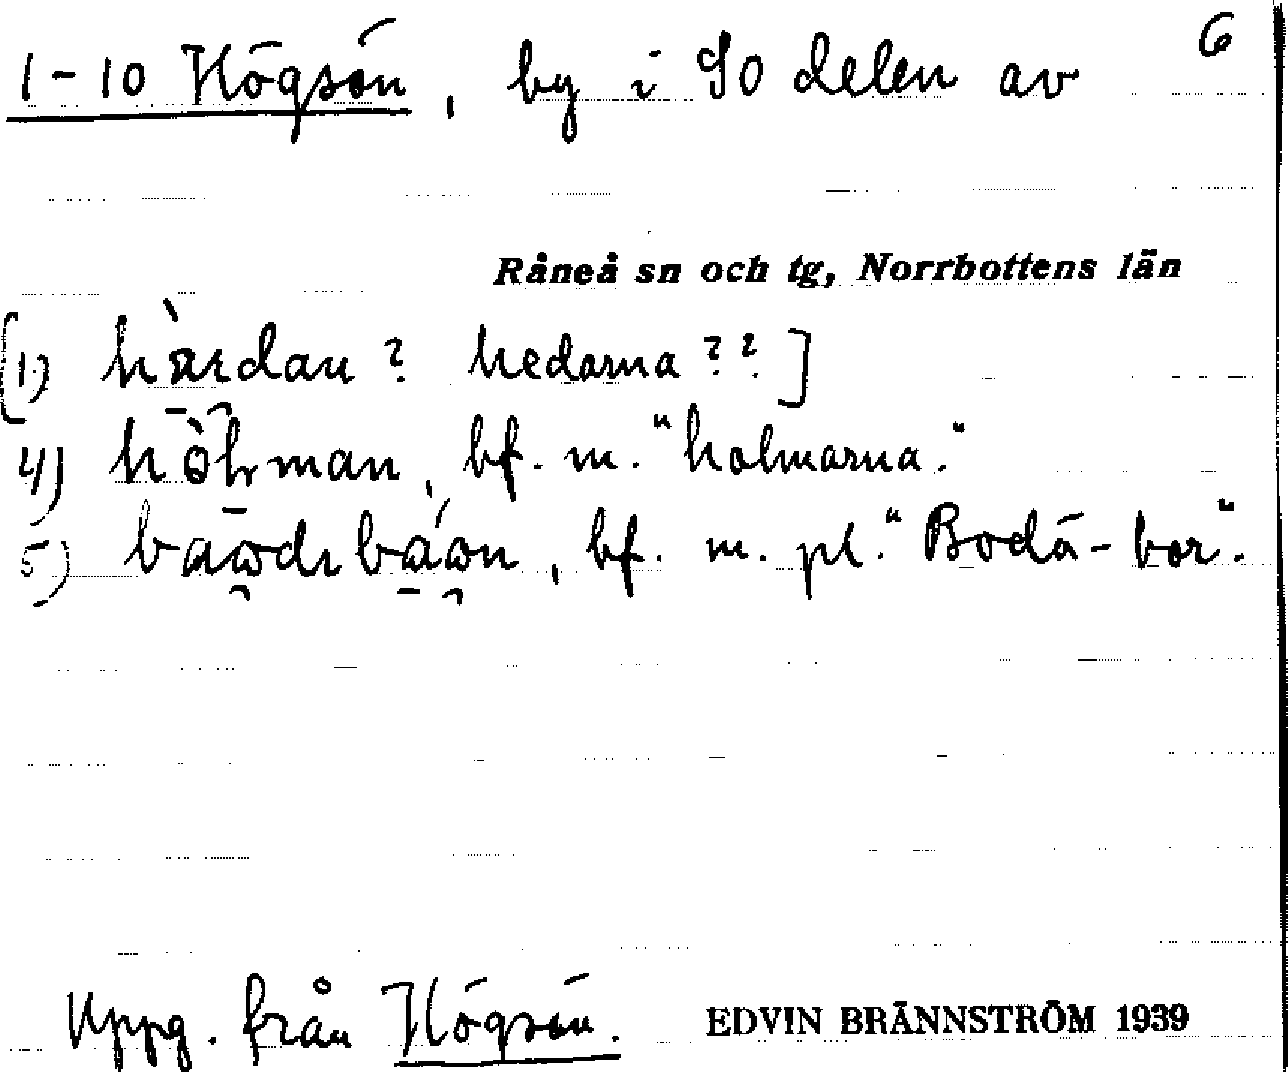 6
1-10 Högsön, by i SO delen av
Råneå sn och tg, Norrbottens län
[1) hàrdan? hedarna??]
4) hòhman, bf. m. "holmarna."
5) bawdsbáwn, bf. m. pl. "Bodå-bor".
Uppg. från Högsön. EDVIN BRÄNNSTRÖM 1939